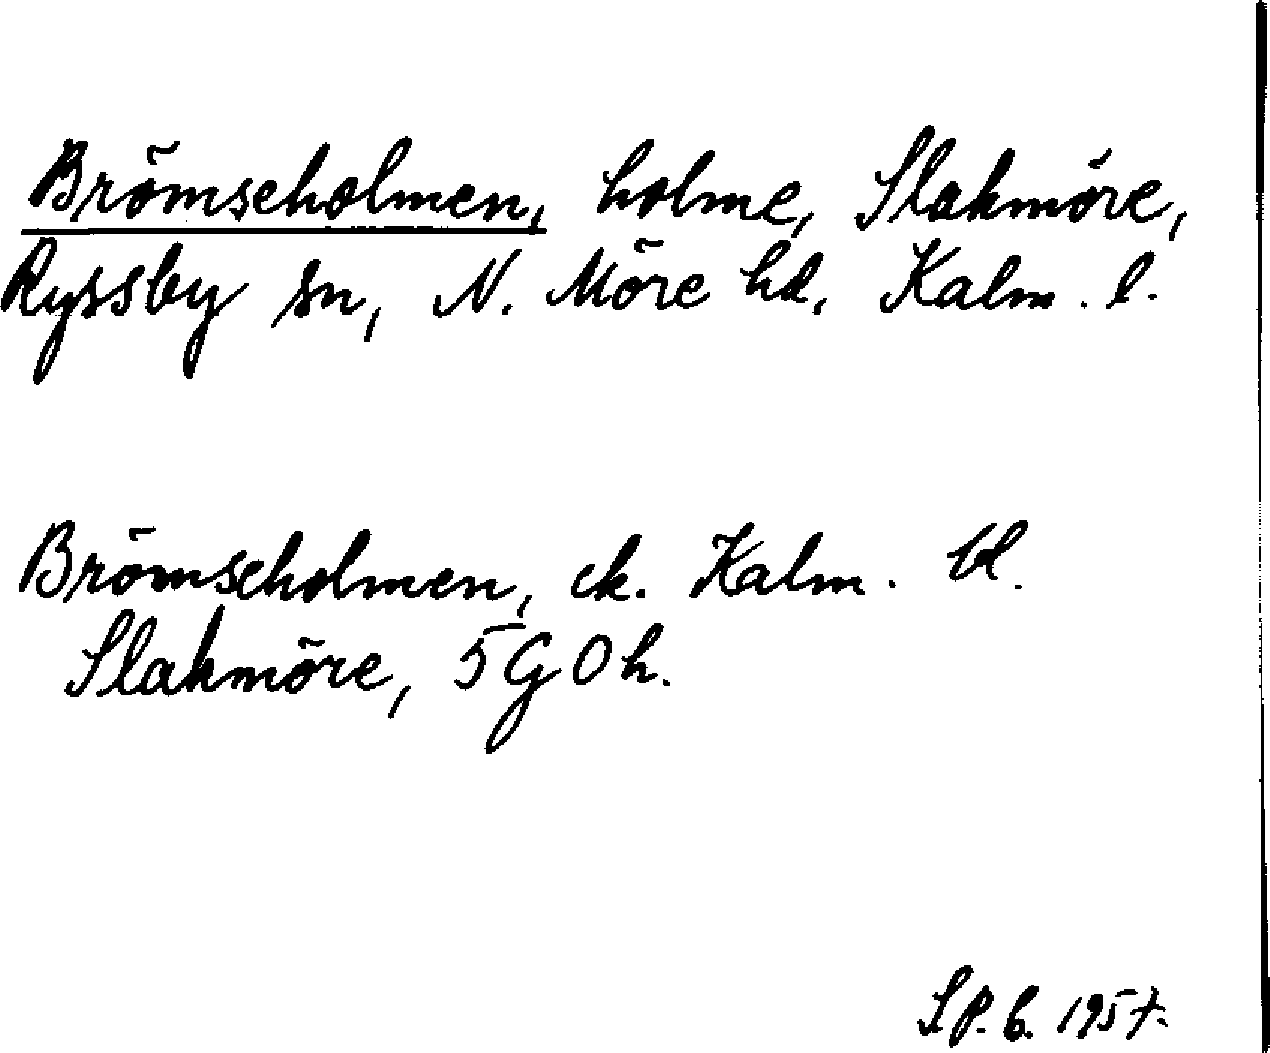 Brömseholmen, holme, Slakmöre,
Ryssby sn, N. Möre hd, Kalm. l.
Brömseholmen, ek. Kalm. bl.
Slakmöre, 5G0h.
S.P.B. 1957.